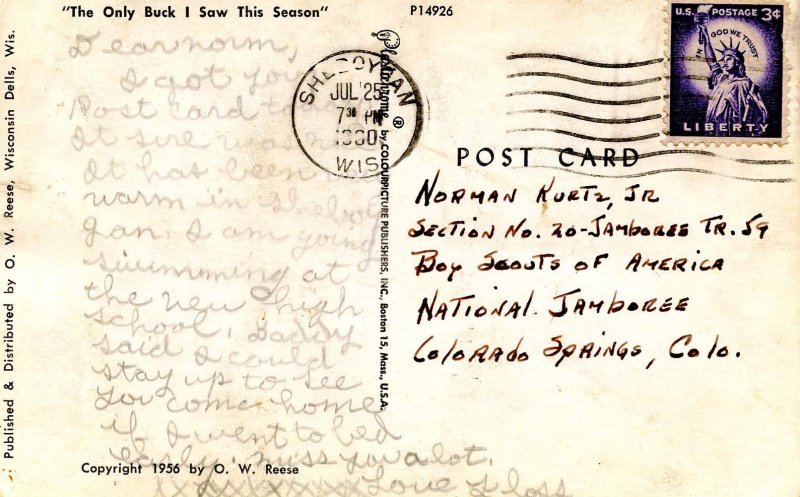 "The Only Buck I Saw This Season"
P14926
Published & Distributed by O. W. Reese, Wisconsin Dells, Wis.
Dear norm,
I got you
Post card
It sure was
It has been
warm in Sheboy
gan. I am going
swimming at
the new high
school. Daddy
said I could
stay up to see
you come home
if I went to bed
early. miss you a lot.
Love
Copyright 1956 by O. W. Reese
Plastichrome ® by COLOURPICTURE PUBLISHERS, INC., Boston 15, Mass., U.S.A.
SHEBOYGAN
JUL 25
7 30 PM
1960
WIS.
U.S. POSTAGE 3¢
IN GOD WE TRUST
LIBERTY
POST CARD
NORMAN KURTZ, JR
SECTION NO. 20-JAMBOREE TR. 59
BOY SCOUTS OF AMERICA
NATIONAL JAMBOREE
COLORADO SPRINGS, COLO.